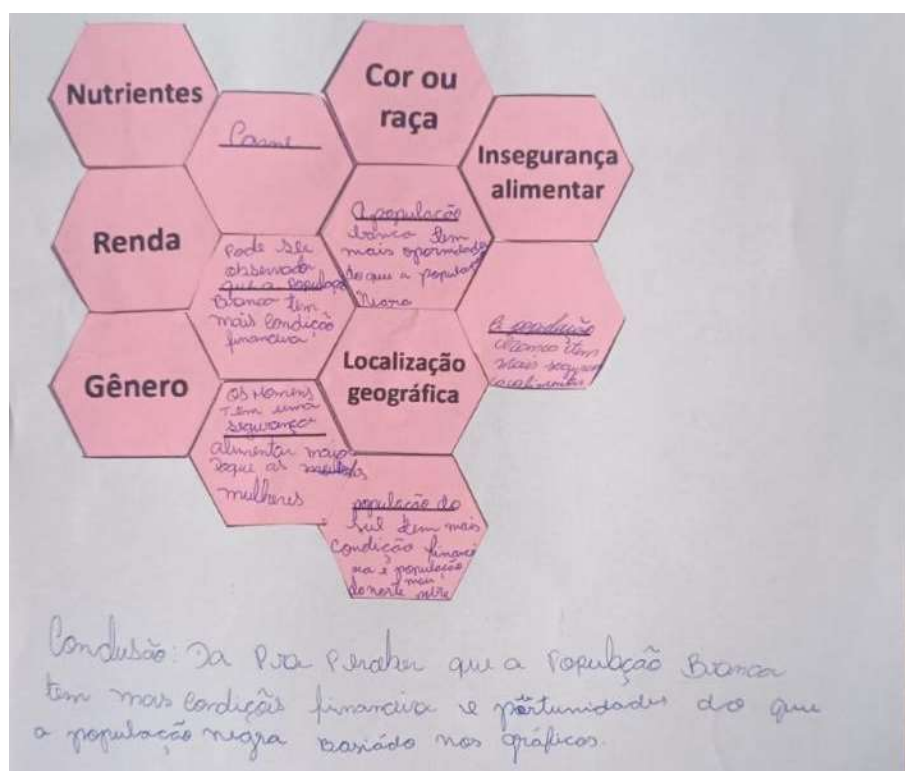 Nutrientes
Carne
Cor ou
raça
Insegurança
alimentar
Renda
Pode ser
observado
que a população
Branca tem
mais condição
financeira
A população
branca tem
mais
do que a
Negra
A população
branca tem
mais
Gênero
Os Homens
Tem uma
segurança
alimentar maior
doque as
mulheres
Localização
geográfica
população do
Sul tem mais
condição
população
mais
do norte
Conclusão: Da Pra Perceber que a População Branca
tem mais financeira e do que
a população negra nos gráficos.